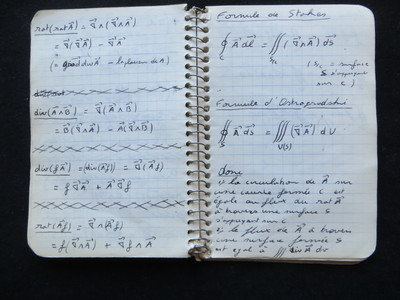 rot(rot A⃗) = ∇⃗∧(∇⃗∧A⃗)
= ∇⃗(∇⃗A⃗) − ∇⃗A⃗
(= grad div A⃗ − laplacien de A)
div(A⃗∧B⃗) = ∇⃗(A⃗∧B⃗)
= B⃗(∇⃗∧A⃗) − A⃗(∇⃗∧B⃗)
div(f A⃗) = (div(A⃗f)) = ∇⃗(A⃗f)
= f∇⃗A⃗ + A⃗∇⃗f
rot(A⃗f) = ∇⃗∧(A⃗f)
= f(∇⃗∧A⃗) + ∇⃗f∧A⃗
Formule de Stokes
∮C A⃗ dl⃗ = ∬S/C (∇⃗∧A⃗) dS⃗
(S/C = surface
S s'appuyant
sur C)
Formule d'Ostrogradski
∯ A⃗ ds⃗ = ∭V(S) (∇⃗A⃗) dV
donc
1) la circulation de A⃗ sur
une courbe fermée C est
égale au flux du rot A⃗
à travers une surface S
s'appuyant sur C
2) le flux de A⃗ à travers
une surface fermée S
est égal à ∭ div A⃗ dv